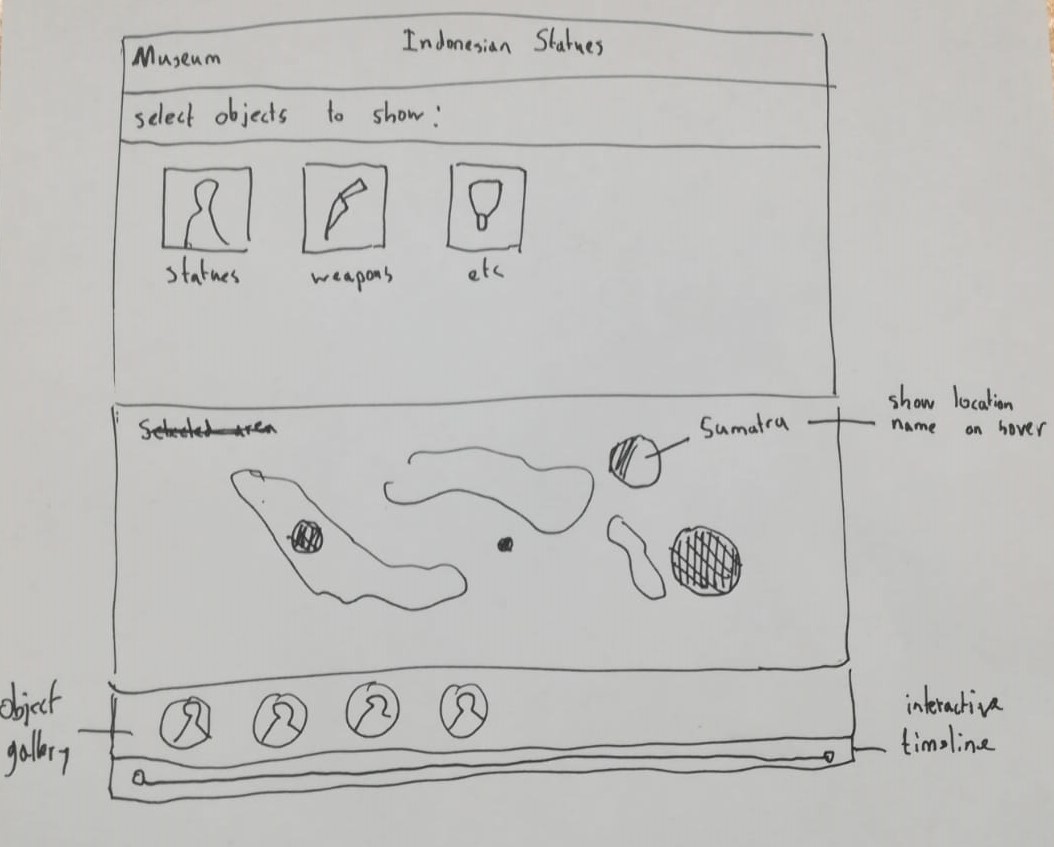 Museum
Indonesian Statues
select objects to show:
statues
weapons
etc
Selected area
Sumatra
show location
name on hover
object
gallery
interactive
timeline